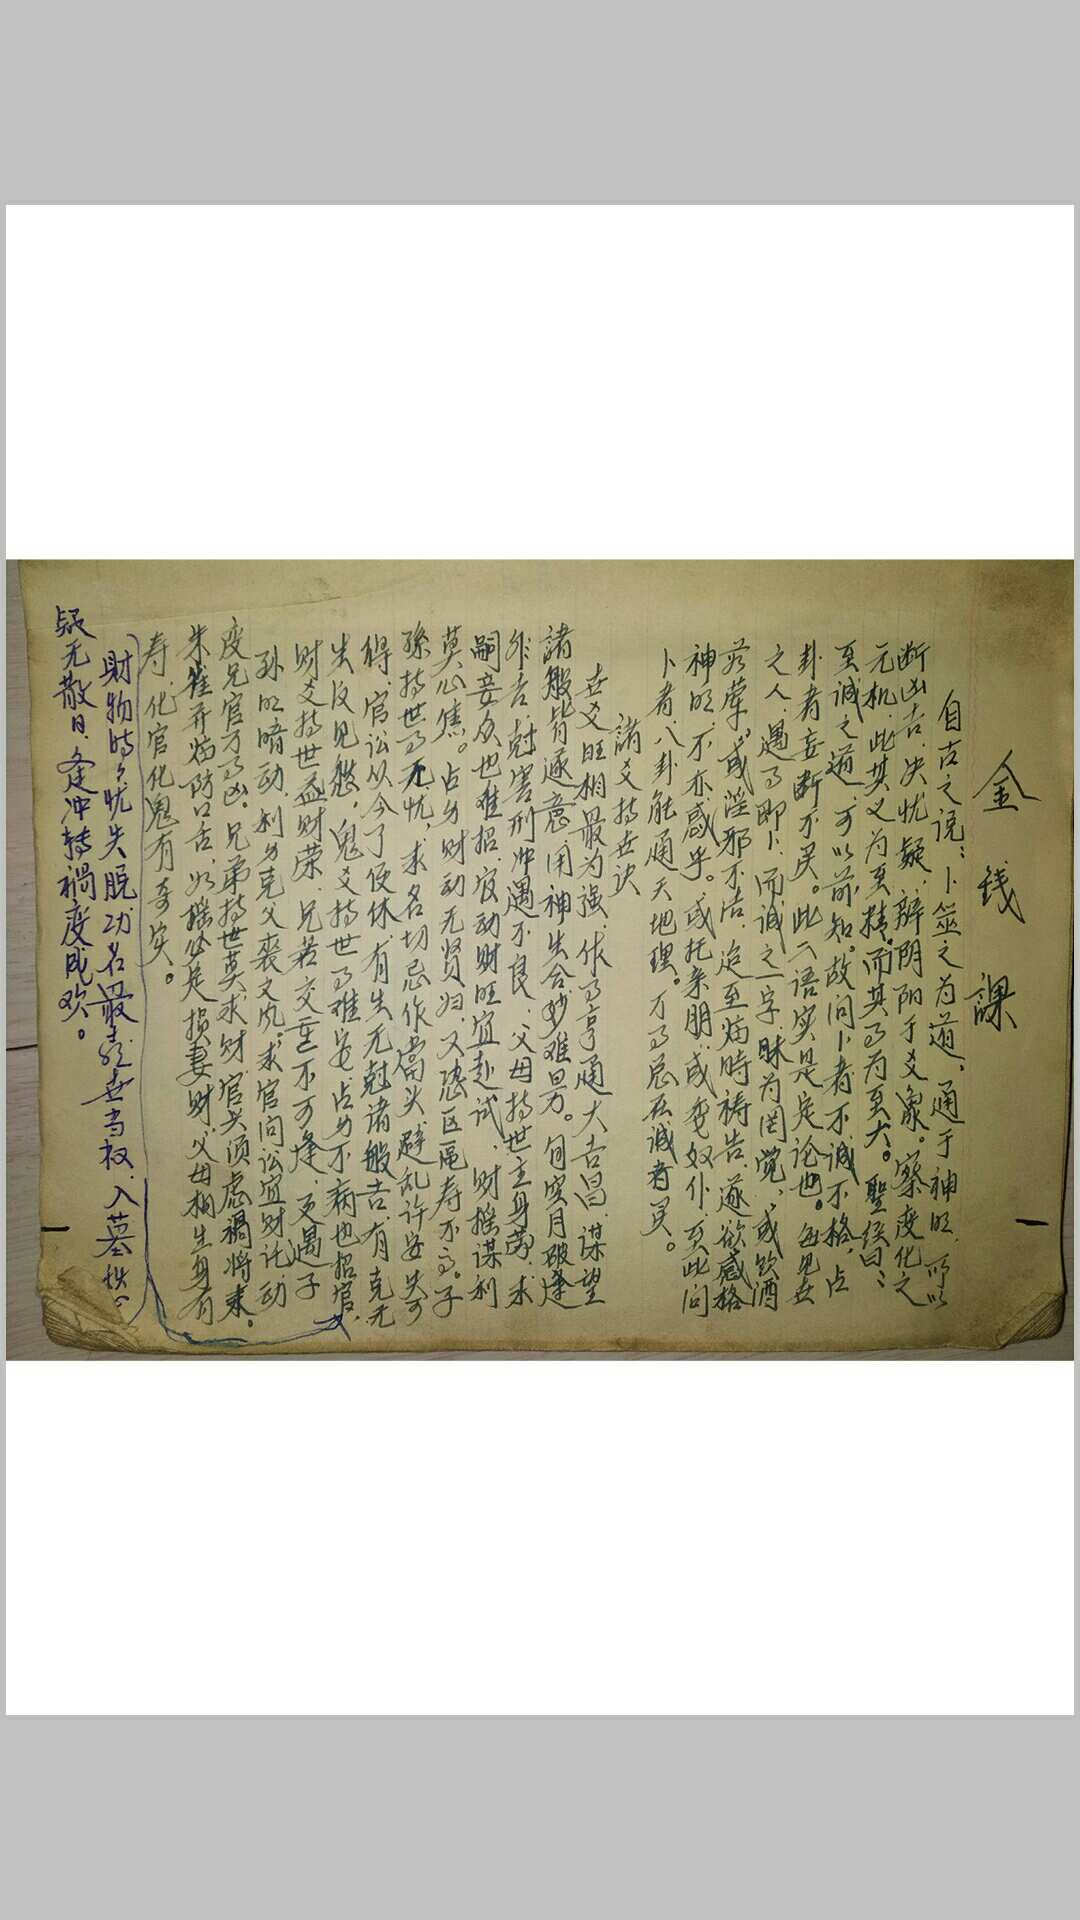 金钱課
自古之说：卜筮之为道，通于神明，所以
断凶吉，决忧疑，辨阴阳于爻象。察变化之
元机，此其义为至精，而其事为至大。聖经曰：
至诚之道，可以前知。故问卜者不诚不格，占
卦者妄断不灵。此二语实是定论也。每见世
之人，遇事即卜，而诚之一字，昧为罔觉，或饮酒
茹荤，或淫邪不洁，迨至临時祷告，遂欲感格
神明，不亦惑乎。或托亲朋，或委奴仆，至此问
卜者，八卦能通天地理。万事总在诚者灵。
諸爻持世诀
世爻旺相最为强，作事亨通大吉昌，谋望
諸般皆遂意，用神生合妙难量。旬空月破逢
非吉，尅害刑冲遇不良，父母持世主身劳，求
嗣妾众也难招，官动财旺宜赴试，财摇谋利
莫心焦。占身财动无贤妇，又恐区区寿不高。子
孫持世事无忧，求名切忌作当头，避乱许安失可
得，官讼从今了便休，有生无尅诸般吉，有克无
生反见愁，鬼爻持世事难安，占身不病也招官，
财爻持世益财荣，兄若交重不可逢，更遇子
孙明暗动，利身克父丧文风，求官问讼宜财托，动
变兄官万事凶。兄弟持世莫求财，官兴须虑禍将来。
朱雀并临防口舌，如摇必是损妻财，父母相生身有
寿，化官化鬼有奇灾。
財物時々忧失脱，功名最喜世当权，入墓愁
疑无散日，逢冲转禍变成欢。